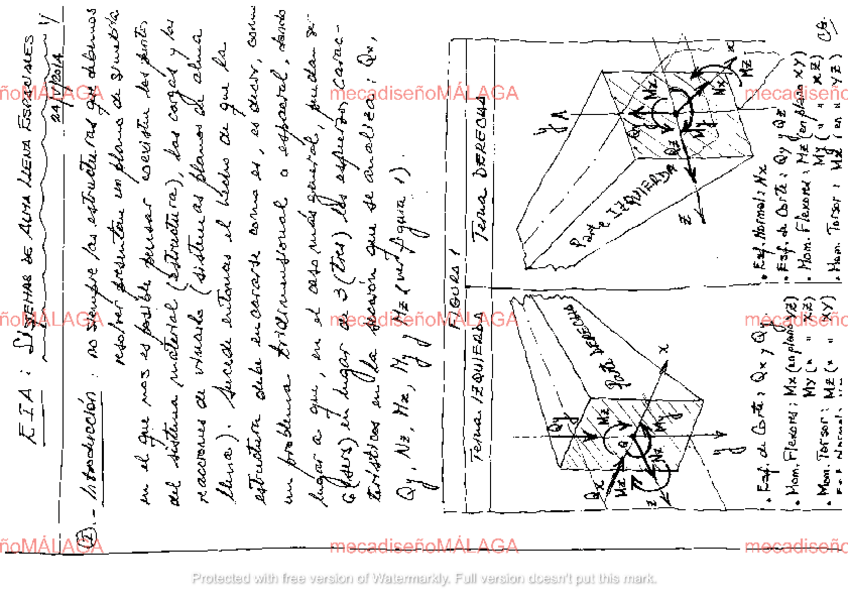 EIA: SISTEMAS DE ALMA LLENA ESPACIALES 1/
21/V/2014
I.- Introducción: no siempre las estructuras que debemos
resolver presentan un plano de simetría
en el que nos es posible pensar coexisten los puntos
del sistema material (estructura), las cargas y las
reacciones de vínculo (sistemas planos de alma
llena). Sucede entonces el hecho de que la
estructura debe encararse como es, es decir, como
un problema tridimensional o espacial, dando
lugar a que, en el caso más general, puedan se-
6 (seis) en lugar de 3 (tres) los esfuerzos carac-
terísticos en la sección que se analiza: Qx,
Qy, Nz, Mx, My y Mz (ver figura 1).
FIGURA 1
Terna IZQUIERDA
Terna DERECHA
Parte DERECHA
Qy
Qx
Mx
Mz
My
Nz
G
x
y
z
Parte IZQUIERDA
y
A
Qy
Qz
Mz
My
Nx
x
Mx
z
• Esf. de Corte: Qx y Qy
• Mom. Flexores: Mx (en plano YZ)
My (" " XZ)
• Mom. Torsor: Mz (" " XY)
• Esf. Normal: Nz
• Esf. Normal: Nx
• Esf. de Corte: Qy y Qz
• Mom. Flexores: Mz (en plano XY)
My (" " XZ)
• Mom. Torsor: Mx (en " YZ)
CG.
mecadiseñoMÁLAGA
Protected with free version of Watermarkly. Full version doesn't put this mark.